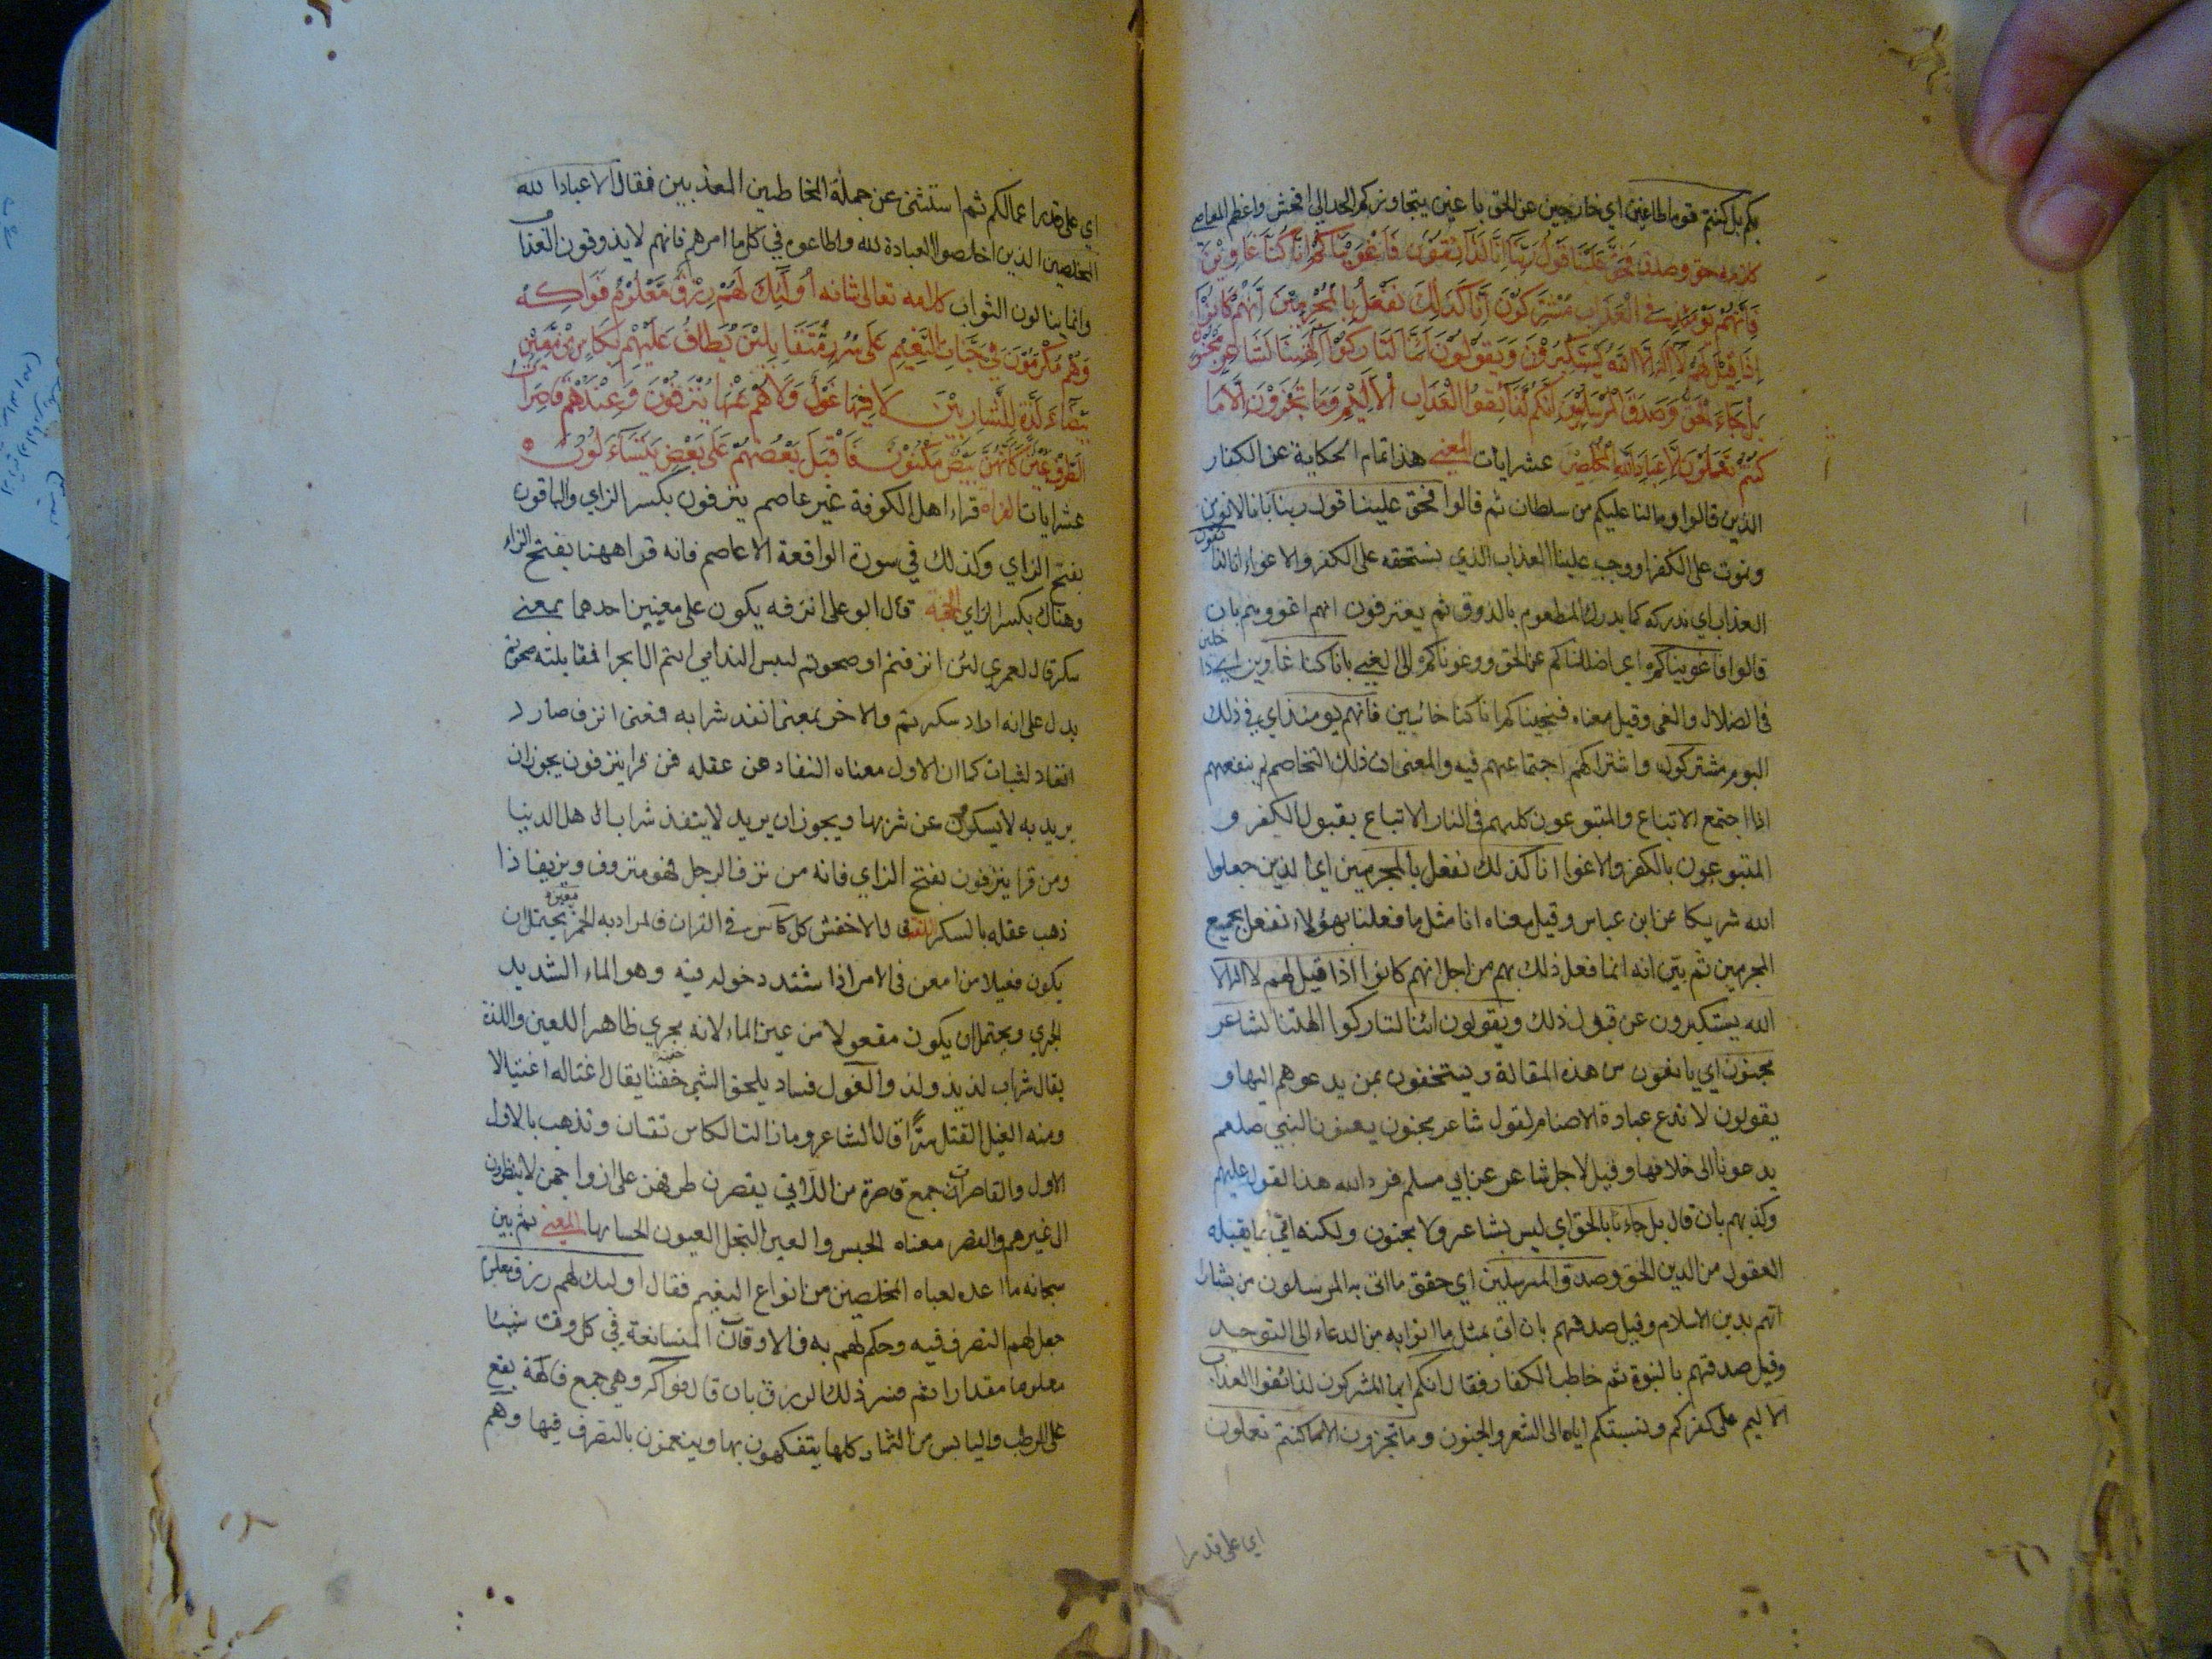 بكم بل كنتم قوما طاغين اي خارجين عن الحق باغين يتجاوزكم الحد الى افحش واعظم المعاصي
كلامه حق وصدق فَحَقَّ عَلَيْنَا قَوْلُ رَبِّنَا اِنَّا لَذَآئِقُوْنَ فَاَغْوَيْنَاكُمْ اِنَّا كُنَّا غَاوِيْنَ
فَاِنَّهُمْ يَوْمَئِذٍ فِي الْعَذَابِ مُشْتَرِكُوْنَ اِنَّا كَذَلِكَ نَفْعَلُ بِالْمُجْرِمِيْنَ اِنَّهُمْ كَانُوْا
اِذَا قِيْلَ لَهُمْ لَا اِلَهَ اِلَّا اللهُ يَسْتَكْبِرُوْنَ وَيَقُوْلُوْنَ اَئِنَّا لَتَارِكُوْا آلِهَتِنَا لِشَاعِرٍ مَجْنُوْنٍ
بَلْ جَاءَ بِالْحَقِّ وَصَدَّقَ الْمُرْسَلِيْنَ اِنَّكُمْ لَذَآئِقُوْا الْعَذَابِ الْاَلِيْمِ وَمَا تُجْزَوْنَ اِلَّا مَا
كُنْتُمْ تَعْمَلُوْنَ اِلَّا عِبَادَ اللهِ الْمُخْلَصِيْنَ عشر ايات المعنى هذا تمام الحكاية عن الكفار
الذين قالوا وما لنا عليكم من سلطان ثم قالوا فحق علينا قول ربنا بانا لا نؤمن
ونموت على الكفر او وجب علينا العذاب الذي نستحقه على الكفر والاغواء انا لذائقون
العذاب اي ندركه كما يدرك المطعوم بالذوق ثم يعترفون انهم اغووهم بان
قالوا فاغويناكم اي اضللناكم عن الحق ودعوناكم الى الغي بانا كنا غاوين اي داخلين
في الضلال والغي وقيل معناه فخيبناكم انا كنا خائبين فانهم يومئذ اي في ذلك
اليوم مشتركون واشتراكهم اجتماعهم فيه والمعنى ان ذلك التخاصم لم ينفعهم
اذا اجتمع الاتباع والمتبوعون كلهم في النار الاتباع بقبول الكفر و
المتبوعون بالكفر والاغوا انا كذلك نفعل بالمجرمين اي الذين جعلوا
الله شريكا عن ابن عباس وقيل معناه انا مثل ما فعلنا بهؤلاء نفعل بجميع
المجرمين ثم بين انه انما فعل ذلك بهم من اجل انهم كانوا اذا قيل لهم لا اله الا
الله يستكبرون عن قبول ذلك ويقولون ائنا لتاركوا الهتنا لشاعر
مجنون اي يانفون من هذه المقالة ويستخفون بمن يدعوهم اليها و
يقولون لا ندع عبادة الاصنام لقول شاعر مجنون يعنون النبي صلعم
يدعونا الى خلافها وقيل لاجل شاعر عن ابي مسلم فرد الله هذا القول عليهم
وكذبهم بان قال بل جاءنا بالحق اي ليس بشاعر ولا مجنون ولكنه اتى بما يقبله
العقول من الدين الحق وصدق المرسلين اي حقق ما اتى به المرسلون من بشارا
اتهم بدين الاسلام وقيل صدقهم بان اتى بمثل ما اتوا به من الدعاء الى التوحيد
وقيل صدقهم بالنبوة ثم خاطب الكفار فقال انكم ايها المشركون لذائقوا العذاب
الاليم على كفركم ونسبتكم اياه الى الشعر والجنون وما تجزون الا ما كنتم تعملون
اي على قدر ا
اي على قدر اعمالكم ثم استثنى عن جملة المخاطبين المعذبين فقال الا عباد الله
المخلصين الذين اخلصوا العبادة لله واطاعوه في كل ما امرهم فانهم لا يذوقون العذاب
وانما ينالون الثواب كالله تعالى شانه اُولَئِكَ لَهُمْ رِزْقٌ مَعْلُوْمٌ فَوَاكِهُ
وَهُمْ مُكْرَمُوْنَ فِي جَنَّاتِ النَّعِيْمِ عَلَى سُرُرٍ مُتَقَابِلِيْنَ يُطَافُ عَلَيْهِمْ بِكَاْسٍ مِنْ مَعِيْنٍ
بَيْضَآءَ لَذَّةٍ لِلشَّارِبِيْنَ لَا فِيْهَا غَوْلٌ وَلَا هُمْ عَنْهَا يُنْزَفُوْنَ وَعِنْدَهُمْ قَاصِرَاتُ
الطَّرْفِ عِيْنٌ كَاَنَّهُنَّ بَيْضٌ مَكْنُوْنٌ فَاَقْبَلَ بَعْضُهُمْ عَلَى بَعْضٍ يَتَسَآءَلُوْنَ
عشر ايات القراة قراء اهل الكوفة غير عاصم ينزفون بكسر الزاي والباقون
بفتح الزاي وكذلك في سورة الواقعة الا عاصم فانه قرا ههنا بفتح الزاء
وهناك بكسر الزاي الحجة قال ابو على انزف يكون على معنيين احدهما بمعنى
سكر قال لعمري لئن انزفتم او صحوتم لبيس الندامى انتم ال ابجرا فمقابلته صحوتم
يدل على انه اراد سكرتم والاخر بمعنى انفد شرابه فمعنى انزف صار ذ
انفاد لشبات كما ان الاول معناه النفاد عن عقله فمن قرا ينزفون يجوز ان
يريد به لا يسكرون عن شربها ويجوز ان يريد لا ينفذ شرابا هل الدنيا
ومن قرا ينزفون بفتح الزاي فانه من نزف الرجل فهو منزوف ونزيف اذا
ذهب عقله بالسكر اللغة قال الاخفش كل كاس في القران فالمراد به الخمر معين يحتمل ان
يكون فعيلا من امعن في الامر اذا اشتد دخوله فيه وهو الماء الشديد
الجري ويحتمل ان يكون مفعولا من عين الماء لانه يجري ظاهرا للعين واللذة
يقال شراب لذ ولذيذ والغول فساد يلحق الشي خفيا يقال اغتاله اغتيالا
ومنه الغيل القتل سرا قال الشاعر وما زالت الكاس تغتان وتذهب بالاول
الاول والقاصرات جمع قاصرة من اللاتي يقصرن طرفهن على ازواجهن لا ينظرون
الى غيرهم والقصر معناه الحبس والعين النجل العيون الحسانها المعنى ثم بين
سبحانه ما اعده لعباه المخلصين من انواع النعيم فقال اولئك لهم رزق معلوم
جعل لهم التصرف فيه وحكم لهم به في الاوقات المنسانفة في كل وقت شيئا
معلوما مقدارا ثم فسر ذلك الرزق بان قال فواكه وهي جمع فاكهة يقع
على الرطب واليابس من الثمار كلها يتفكهون بها ويتنعمون بالتصرف فيها وهم